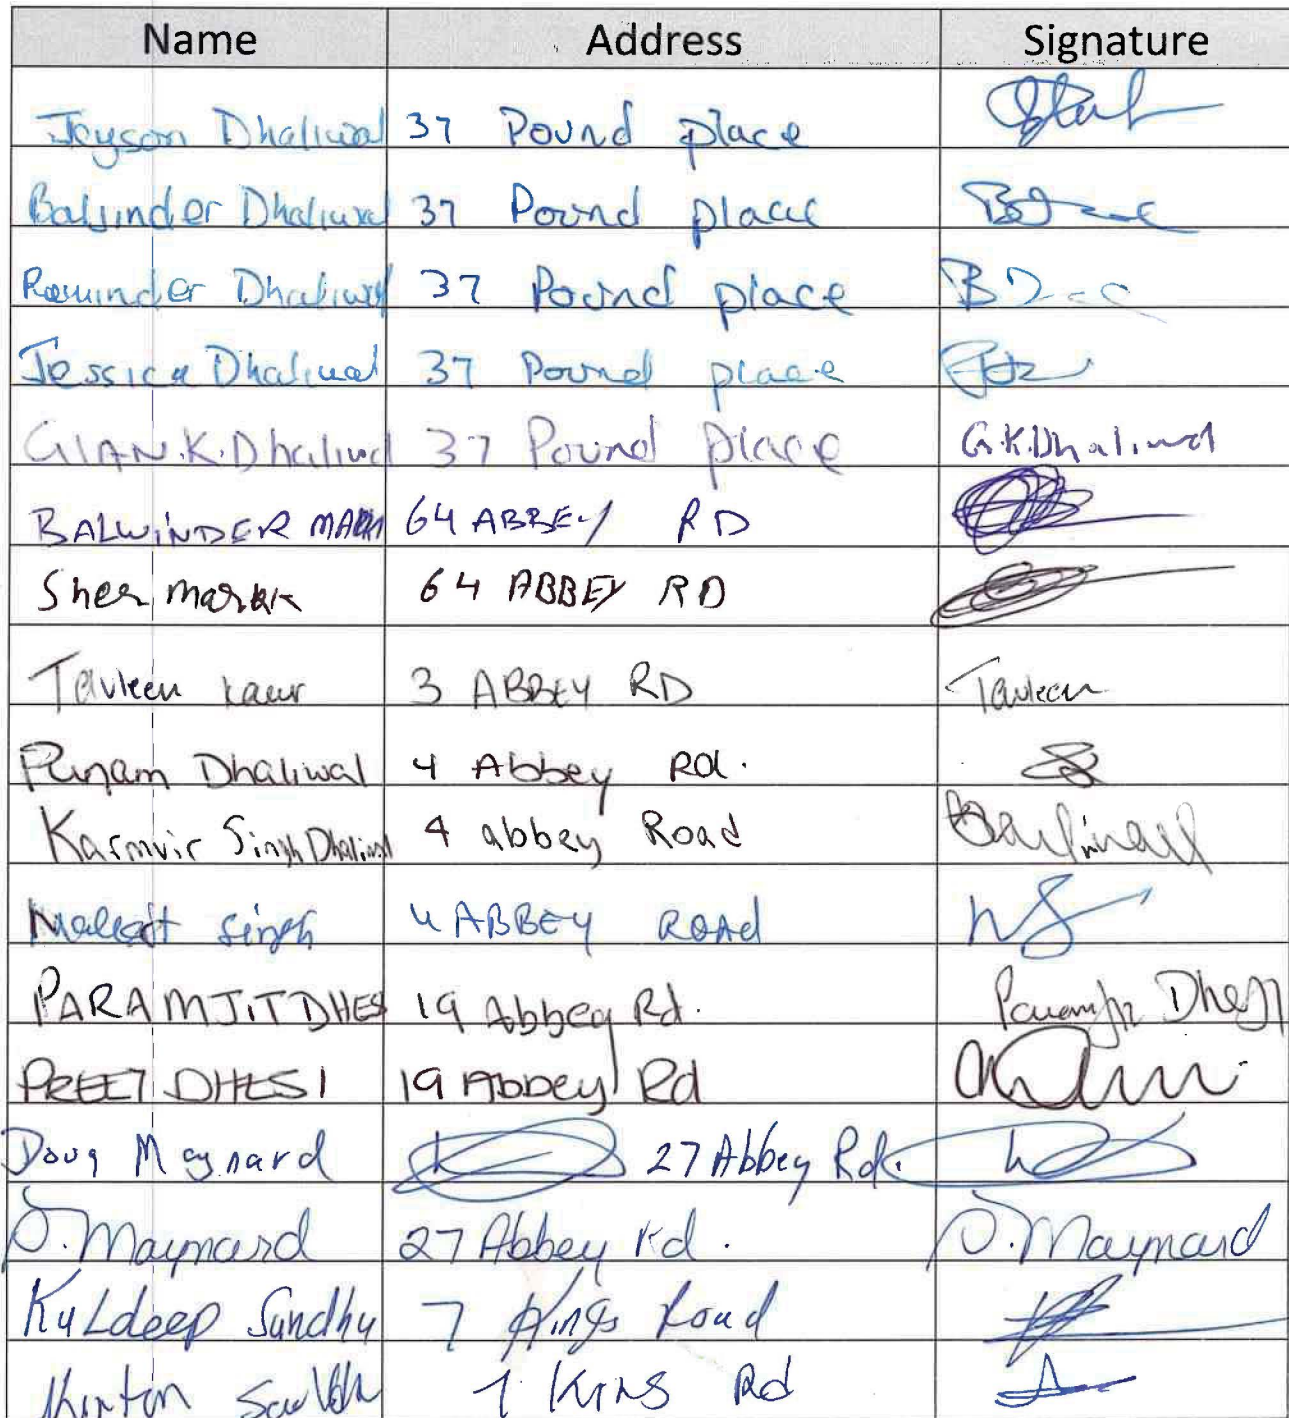 Name Address Signature
Jeyson Dhaliwal 37 Pound place
Baljinder Dhaliwal 37 Pound place
Raminder Dhaliwal 37 Pound place
Jessica Dhaliwal 37 Pound place
GIAN.K.Dhaliwal 37 Pound place G.K.Dhaliwal
BALWINDER 64 ABBEY RD
Sher 64 ABBEY RD
Tavleen kaur 3 ABBEY RD Tavleen
Punam Dhaliwal 4 Abbey Rd.
Karmvir Singh Dhaliwal 4 abbey Road
Singh 4 ABBEY ROAD
PARAMJIT DHESI 19 Abbey Rd. Dhesi
PREET DHESI 19 Abbey Rd
Doug Maynard 27 Abbey Rd.
D. Maynard 27 Abbey rd. D. Maynard
KuLdeep Sandhu 7 Kings Road
7 Kings Rd